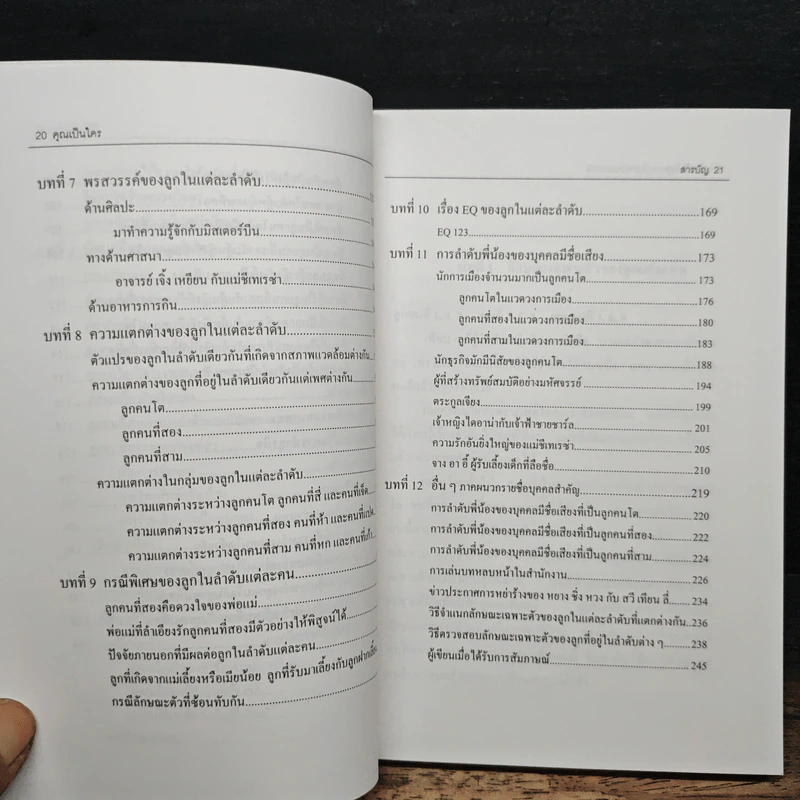 20 คุณเป็นใคร
บทที่ 7 พรสวรรค์ของลูกในแต่ละลำดับ
ด้านศิลปะ
มาทำความรู้จักกับมิสเตอร์บีน
ทางด้านศาสนา
อาจารย์ เจิ้ง เหยียน กับแม่ชีเทเรซ่า
ด้านอาหารการกิน
บทที่ 8 ความแตกต่างของลูกในแต่ละลำดับ
ตัวแปรของลูกในลำดับเดียวกันที่เกิดจากสภาพแวดล้อมต่างกัน
ความแตกต่างของลูกที่อยู่ในลำดับเดียวกันแต่เพศต่างกัน
ลูกคนโต
ลูกคนที่สอง
ลูกคนที่สาม
ความแตกต่างในกลุ่มของลูกในแต่ละลำดับ
ความแตกต่างระหว่างลูกคนโต ลูกคนที่สี่ และคนที่เจ็ด
ความแตกต่างระหว่างลูกคนที่สอง คนที่ห้า และคนที่แปด
ความแตกต่างระหว่างลูกคนที่สาม คนที่หก และคนที่เก้า
บทที่ 9 กรณีพิเศษของลูกในลำดับแต่ละคน
ลูกคนที่สองคือดวงใจของพ่อแม่
พ่อแม่ที่ลำเอียงรักลูกคนที่สองมีตัวอย่างให้พิสูจน์ได้
ปัจจัยภายนอกที่มีผลต่อลูกในลำดับแต่ละคน
ลูกที่เกิดจากแม่เลี้ยงหรือเมียน้อย ลูกที่รับมาเลี้ยงกับลูกฝากเลี้ยง
กรณีลักษณะตัวที่ซ้อนทับกัน
สารบัญ 21
บทที่ 10 เรื่อง EQ ของลูกในแต่ละลำดับ 169
EQ 123 169
บทที่ 11 การลำดับพี่น้องของบุคคลมีชื่อเสียง 173
นักการเมืองจำนวนมากเป็นลูกคนโต 173
ลูกคนโตในแวดวงการเมือง 176
ลูกคนที่สองในแวดวงการเมือง 180
ลูกคนที่สามในแวดวงการเมือง 183
นักธุรกิจมักมีนิสัยของลูกคนโต 188
ผู้ที่สร้างทรัพย์สมบัติอย่างมหัศจรรย์ 194
ตระกูลเจียง 199
เจ้าหญิงไดอาน่ากับเจ้าฟ้าชายชาร์ล 201
ความรักอันยิ่งใหญ่ของแม่ชีเทเรซ่า 205
จาง อา อี้ ผู้รับเลี้ยงเด็กที่ลือชื่อ 210
บทที่ 12 อื่น ๆ ภาคผนวกรายชื่อบุคคลสำคัญ 219
การลำดับพี่น้องของบุคคลมีชื่อเสียงที่เป็นลูกคนโต 220
การลำดับพี่น้องของบุคคลมีชื่อเสียงที่เป็นลูกคนที่สอง 222
การลำดับพี่น้องของบุคคลมีชื่อเสียงที่เป็นลูกคนที่สาม 224
การเล่นบทหลบหน้าในสำนักงาน 226
ข่าวประกาศการหย่าร้างของ หยาง ซิ่ง หวง กับ สวี เทียน ลี่ 234
วิธีจำแนกลักษณะเฉพาะตัวของลูกในแต่ละลำดับที่แตกต่างกัน 236
วิธีตรวจสอบลักษณะเฉพาะตัวของลูกที่อยู่ในลำดับต่าง ๆ 238
ผู้เขียนเมื่อได้รับการสัมภาษณ์ 245